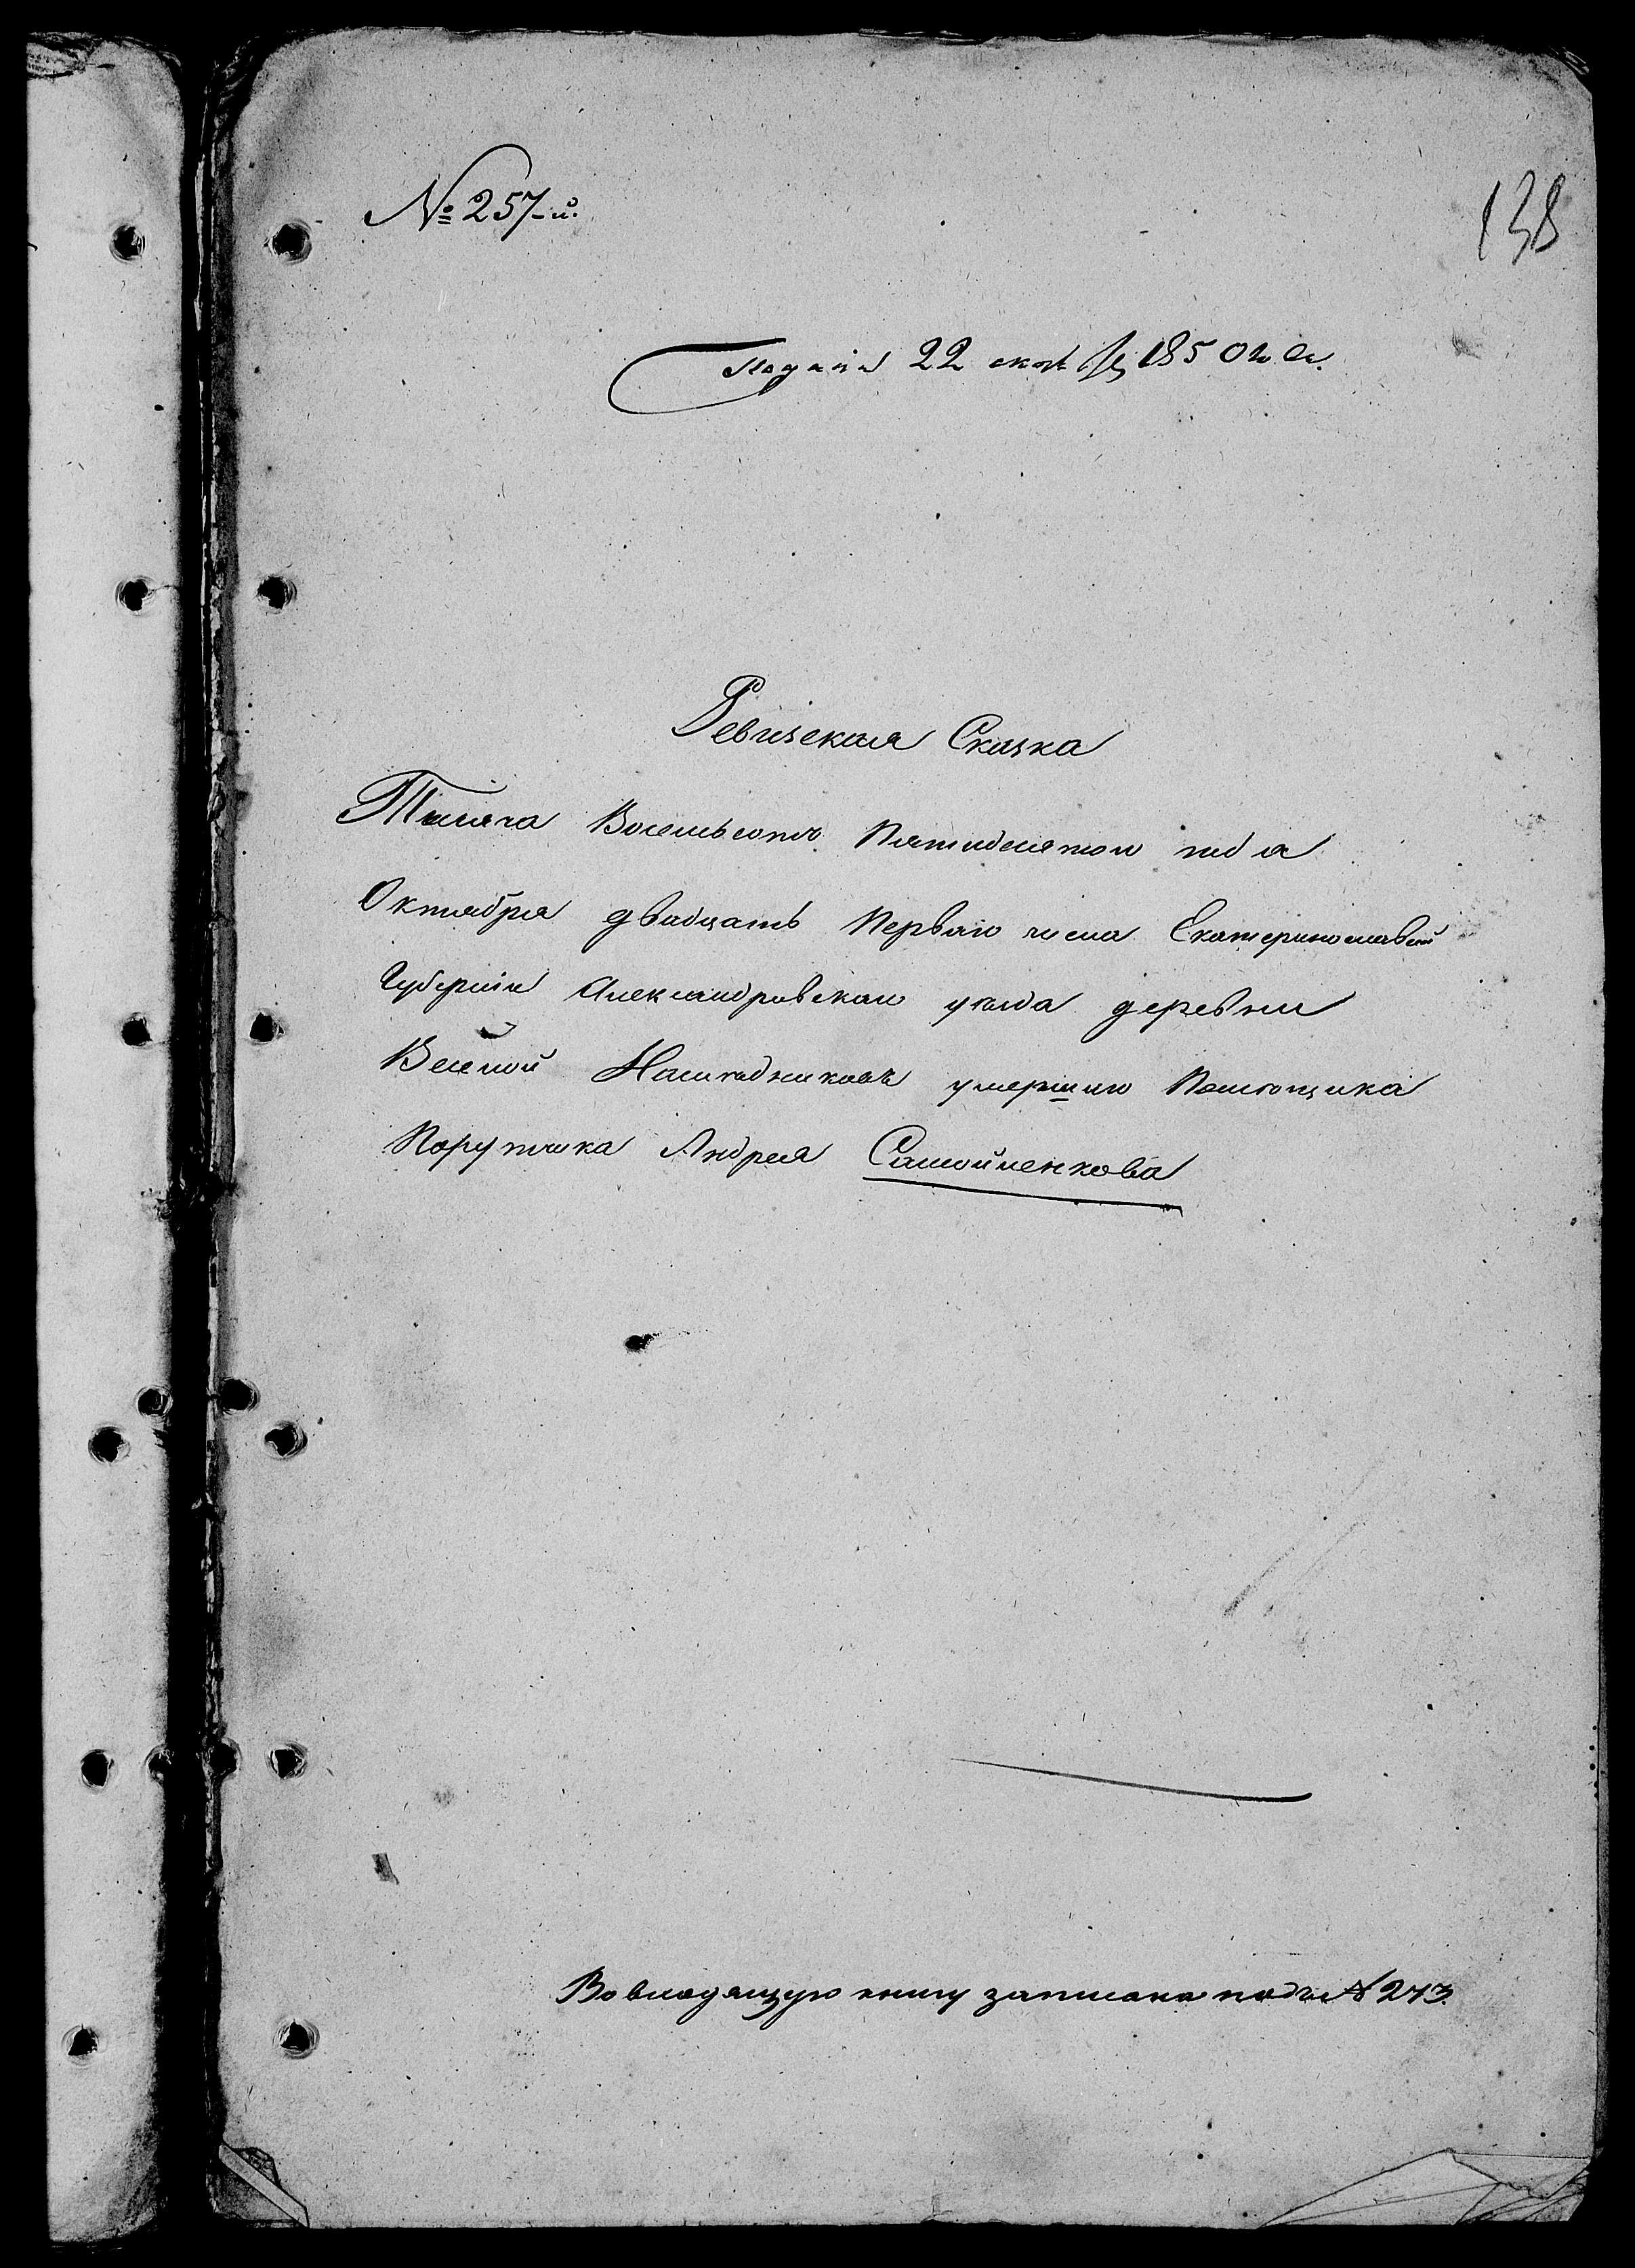 № 257-й.
138
Подана 22 окт 1850 года.
Ревизская Сказка
Тысяча Восемьсотъ Пятидесятого года
Октября двадцать Перваго числа Екатеринославской
Губерніи Александровскаго уезда деревни
Наследниковъ умершаго Помещика
Порутчика Андрея Самойленкова
Во входящую книгу записана подъ № 273.